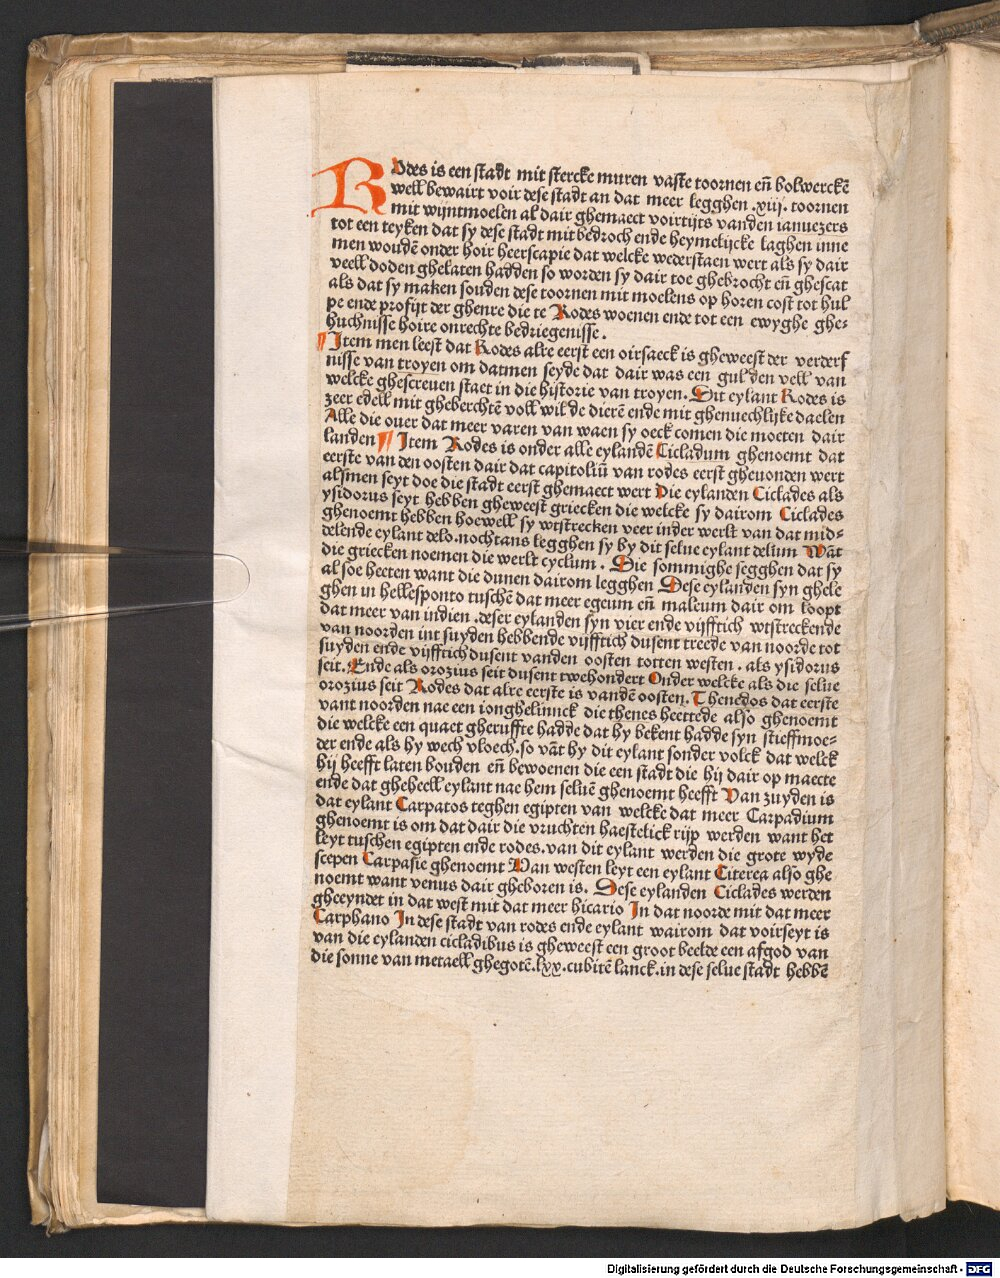 Rodes is een stadt mit stercke muren vaste toornen eñ bolwerckē
well bewairt voir dese stadt an dat meer legghen .xiij. toornen
mit wijntmoelen al dair ghemaect voirtijts vanden ianuezers
tot een teyken dat sy dese stadt mit bedroch ende heymelijcke laghen inne
men woudē onder hoir heerscapie dat welcke wederstaen wert als sy dair
veell doden ghelaten hadden so worden sy dair toe ghebrocht eñ ghescat
als dat sy maken souden dese toornen mit moelens op horen cost tot hul
pe ende profijt der ghenre die te Rodes woenen ende tot een ewyghe ghe-
huchnisse hoire onrechte bedriegenisse.
¶ Item men leest dat Rodes alre eerst een oirsaeck is gheweest der verderf
nisse van troyen om datmen seyde dat dair was een gulden vell van
welcke ghescreuen staet in die historie van troyen. Dit eylant Rodes is
zeer edell mit gheberchtē voll wilde dierē ende mit ghenuechlijke daelen
Alle die ouer dat meer varen van waen sy oeck comen die moeten dair
landen ¶ Item Rodes is onder alle eylandē Cicladum ghenoemt dat
eerste van den oosten dair dat capitoliū van rodes eerst gheuonden wert
alsmen seyt doe die stadt eerst ghemaect wert Die eylanden Ciclades als
ysidorus seyt hebben gheweest griecken die welcke sy dairom Ciclades
ghenoemt hebben hoewell sy wtstrecken veer inder werlt van dat mid-
delende eylant delo. nochtans legghen sy by dit selue eylant delium Wāt
die griecken noemen die werlt cyclum. Die sommighe segghen dat sy
al soe heeten want die dunen dairom legghen Dese eylanden syn ghele
ghen in hellesponto tuschē dat meer egeum eñ maleum dair om loopt
dat meer van indien .deser eylanden syn vier ende vijfftich wtstreckende
van noorden int suyden hebbende vijfftich dusent treede van noorde tot
suyden ende vijfftich dusent vanden oosten totten westen. als ysidorus
seit. Ende als orozius seit dusent twehondert Onder welcke als die selue
orozius seit Rodes dat alre eerste is vandē oosten. Thenedos dat eerste
vant noorden nae een ionghelinnck die thenes heettede also ghenoemt
die welcke een quaet gheruffte hadde dat hy bekent hadde syn stieffmoe-
der ende als hy wech vloech. so vāt hy dit eylant sonder volck dat welck
hij heefft laten bouden eñ bewoenen die een stadt die hij dair op maecte
ende dat gheheell eylant nae hem seluē ghenoemt heefft Van zuyden is
dat eylant Carpatos teghen egipten van weltke dat meer Carpadium
ghenoemt is om dat dair die vruchten haestelick rijp werden want het
leyt tuschen egipten ende rodes. van dit eylant werden die grote wyde
scepen Carpasie ghenoemt Van westen leyt een eylant Citerea also ghe
noemt want venus dair gheboren is. Dese eylanden Ciclades werden
gheeyndet in dat west mit dat meer hicario In dat noorde mit dat meer
Carphano In dese stadt van rodes ende eylant wairom dat voirseyt is
van die eylanden cicladibus is gheweest een groot beelde een afgod van
die sonne van metaell ghegotē. lxx. cubitē lanck. in dese selue stadt hebbē
Digitalisierung gefördert durch die Deutsche Forschungsgemeinschaft - DFG